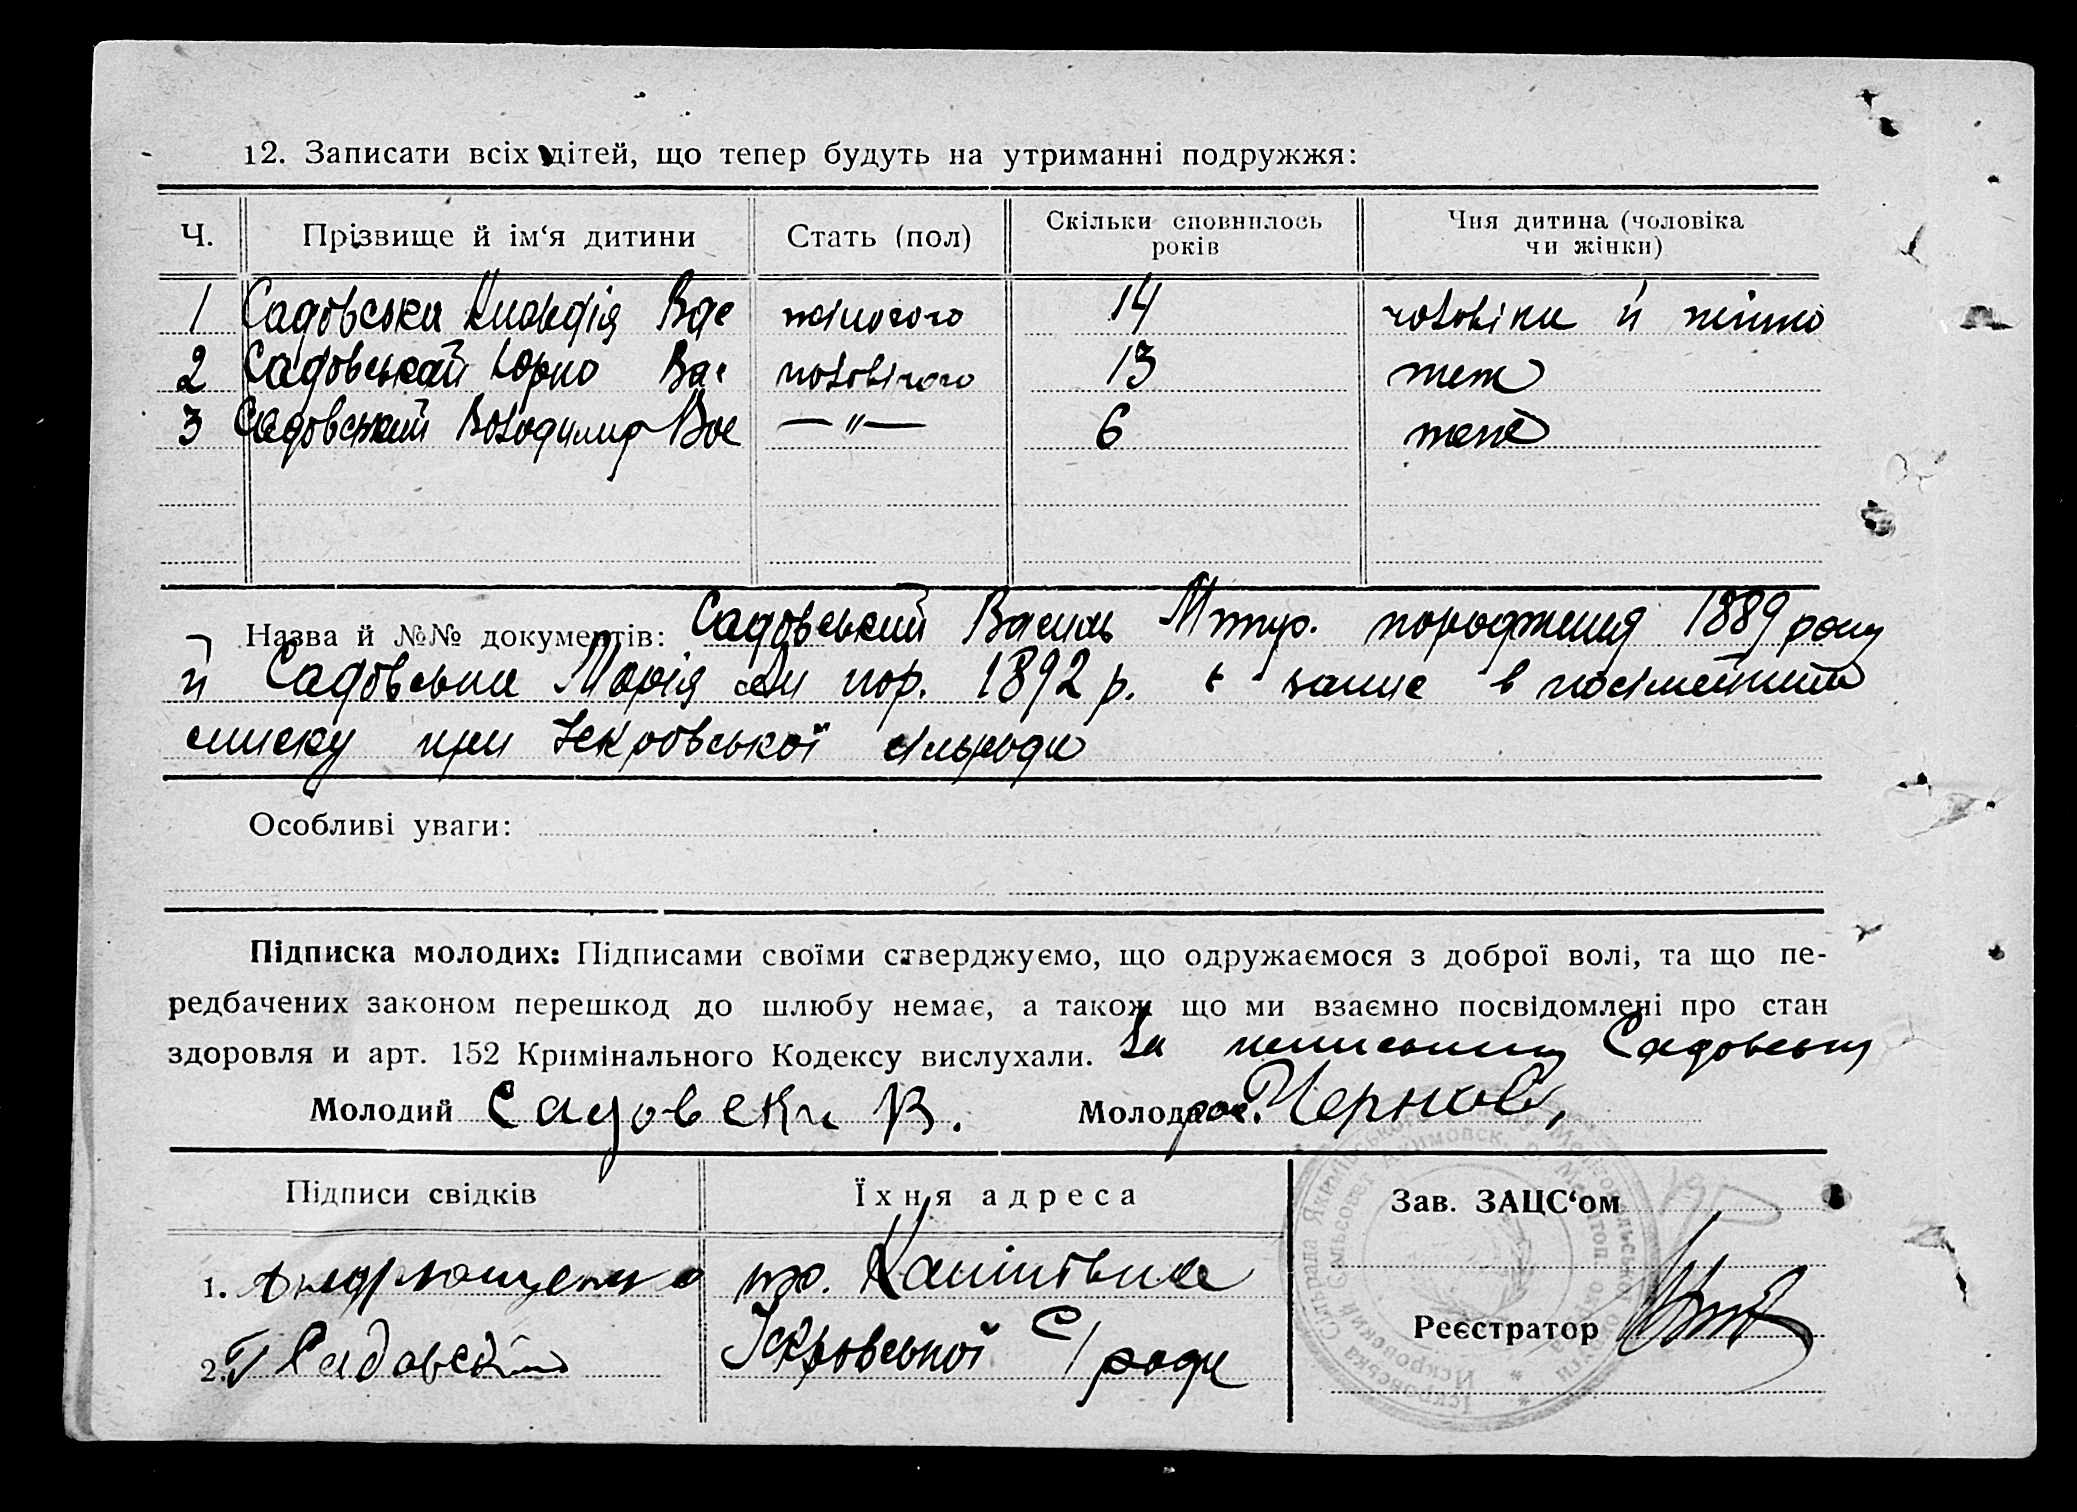 12. Записати всіх дітей, що тепер будуть на утриманні подружжя:
Ч. Прізвище й ім‘я дитини Стать (пол) Скільки сповнилось років Чия дитина (чоловіка чи жінки)
1 Садовська Клавдія Вас жіночого 14 чоловіка й жінки
2 Садовський Юрко Вас чоловічого 13 теж
3 Садовський Володимир Вас —„— 6 теж
Назва й №№ документів: Садовський Василь породження 1889 року
й Садовська Марія пор. 1892 р. є запис в посімейним
списку при Іскровської сільради
Особливі уваги:
Підписка молодих: Підписами своїми стверджуємо, що одружаємося з доброї волі, та що пе-
редбачених законом перешкод до шлюбу немає, а також що ми взаємно посвідомлені про стан
здоровля и арт. 152 Кримінального Кодексу вислухали. За неписьмену Садовську
Молодий Садовски В. Молода рос. Чернов
Підписи свідків Їхня адреса Зав. ЗАЦС‘ом
1. Андрющенко
2. Садовский Іскровської С/ради
Реєстратор